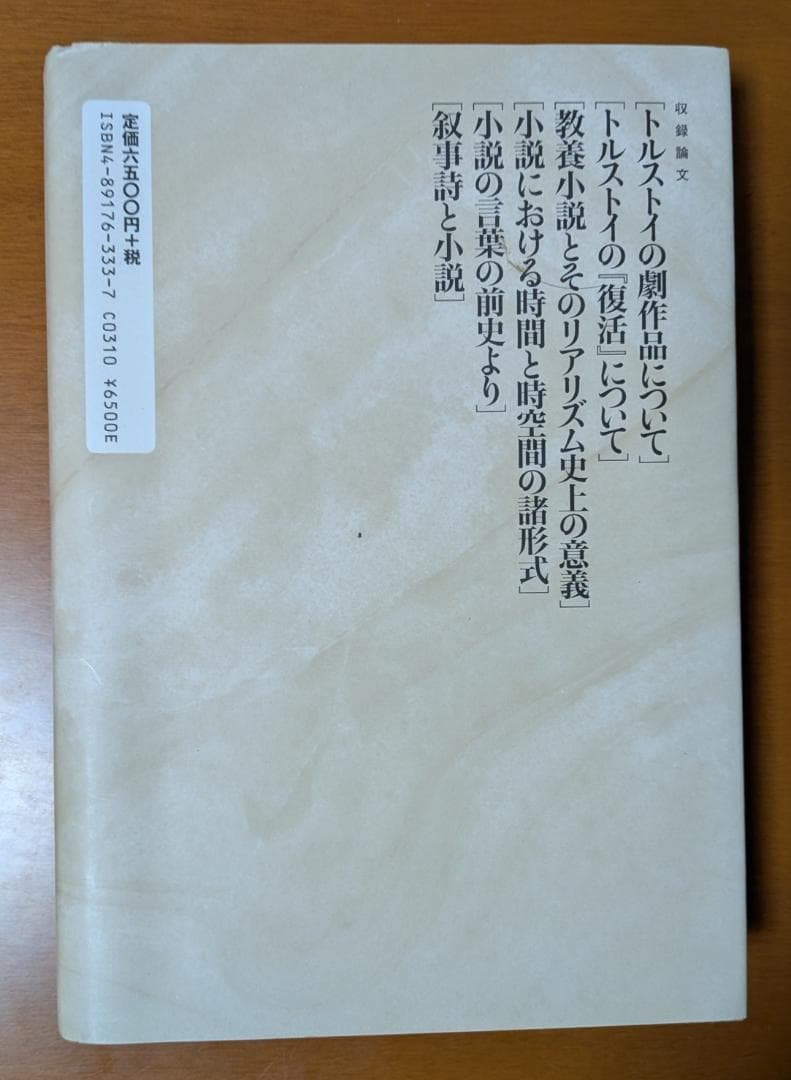 収録論文
[トルストイの劇作品について]
[トルストイの『復活』について]
[教養小説とそのリアリズム史上の意義]
[小説における時間と時空間の諸形式]
[小説の言葉の前史より]
[叙事詩と小説]
定価六五〇〇円+税
ISBN4-89176-333-7 C0310 ¥6500E